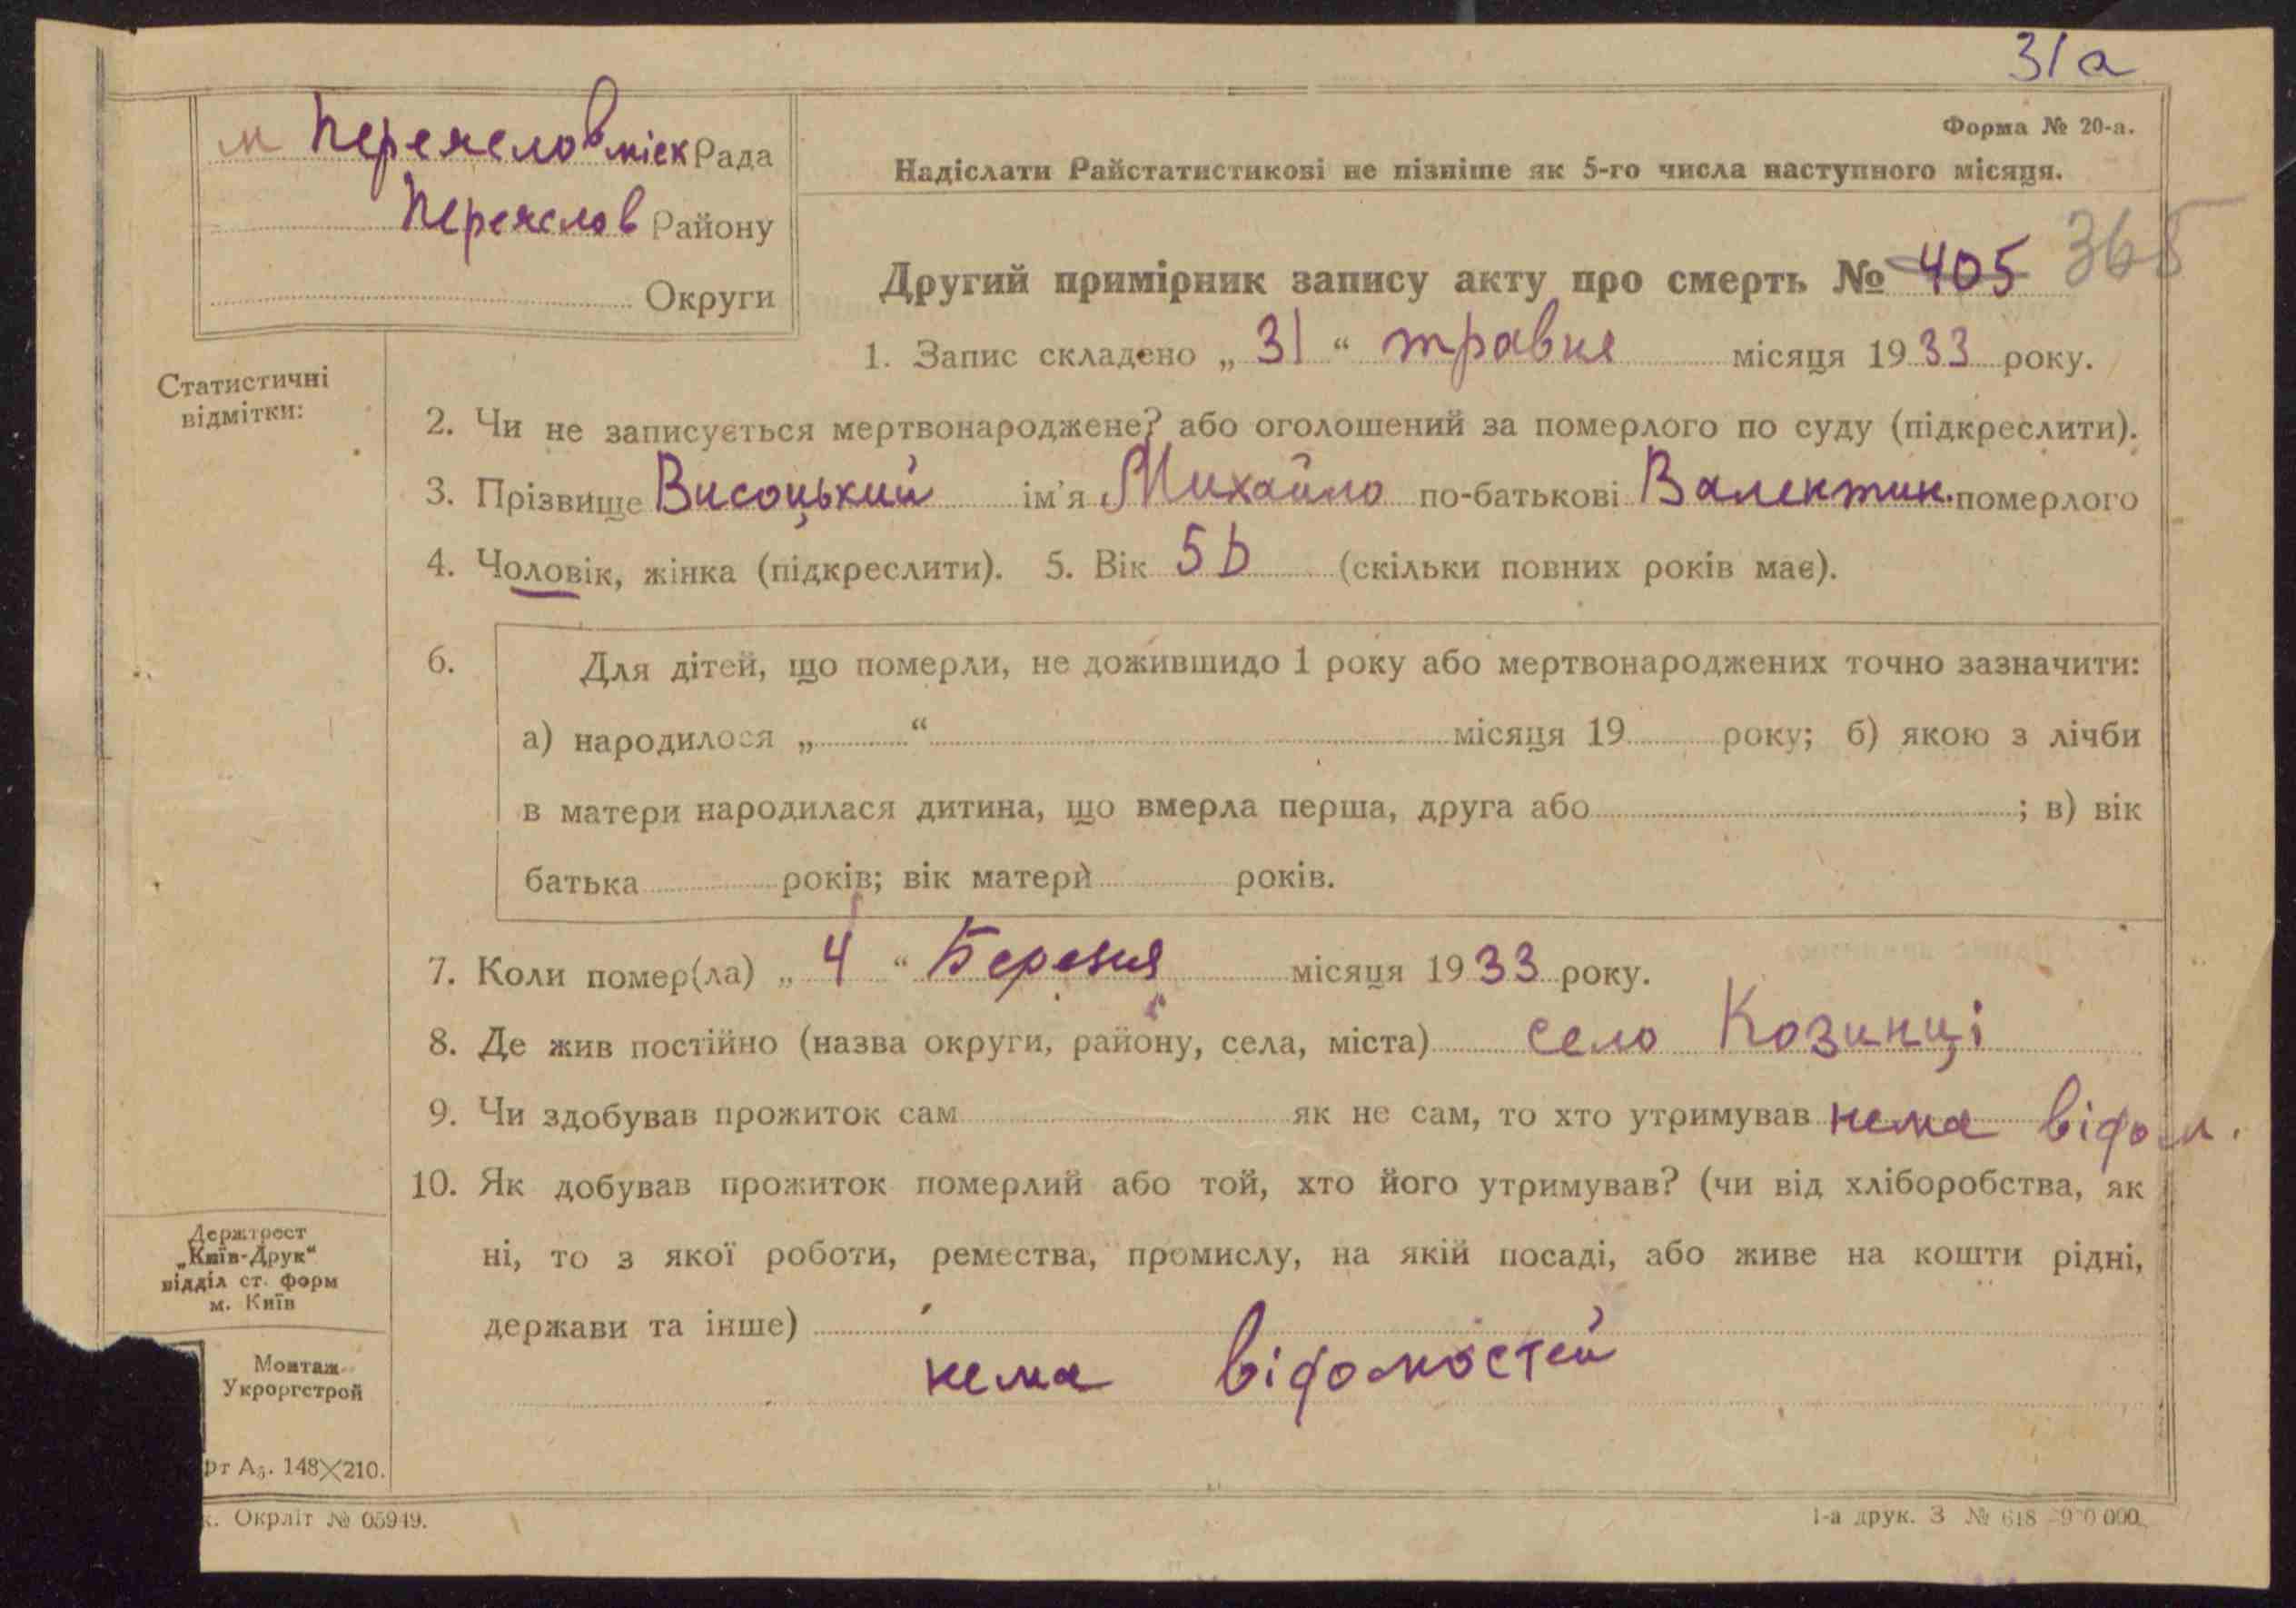 31а
Форма № 20-а.
м Переяслов міск Рада
Надіслати Райстатистикові не пізніше як 5-го числа наступного місяця.
Переяслов Району
Округи
Другий примірник запису акту про смерть № 405 365
1. Запис складено „ 31 “ травня місяця 1933 року.
Статистичні
відмітки:
2. Чи не записується мертвонароджене? або оголошений за померлого по суду (підкреслити).
3. Прізвище Висоцький ім’я Михайло по-батькові Валентин. померлого
4. Чоловік, жінка (підкреслити). 5. Вік (скільки повних років має).
6. Для дітей, що померли, не дожившидо 1 року або мертвонароджених точно зазначити:
а) народилося „ “ місяця 19 року; б) якою з лічби
в матери народилася дитина, що вмерла перша, друга або ; в) вік
батька років; вік матери років.
7. Коли помер(ла) „ 4 “ Березня місяця 1933 року.
8. Де жив постійно (назва округи, району, села, міста) село Козинці
9. Чи здобував прожиток сам як не сам, то хто утримував нема відом.
10. Як добував прожиток померлий або той, хто його утримував? (чи від хліборобства, як
ні, то з якої роботи, ремества, промислу, на якій посаді, або живе на кошти рідні,
держави та інше)
нема відомостей
Держтрест
„Київ-Друк“
відділ ст. форм
м. Київ
Монтаж
Укроргстрой
рт А5. 148×210.
к. Окрліт № 05949.
1-а друк. З № 618